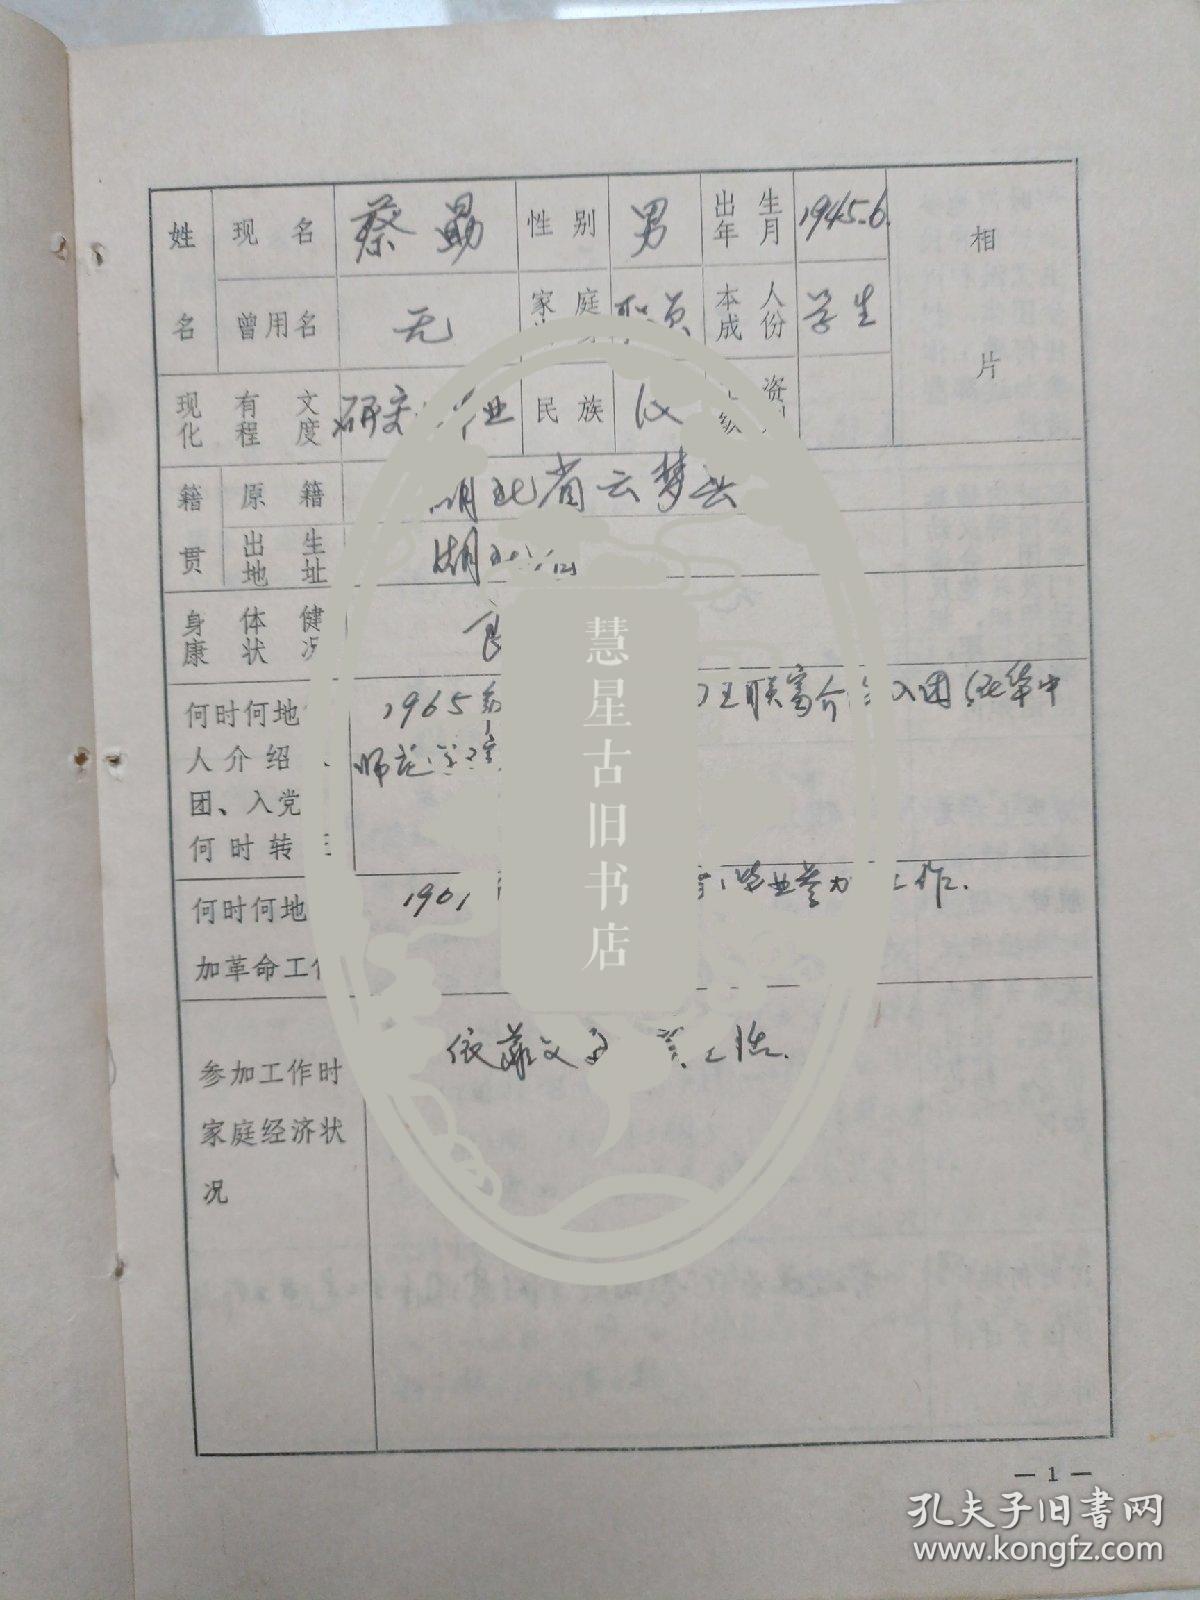 姓名 现名 蔡勗 性别 男 出生年月 1945.6. 相片
曾用名 无 家庭 职员 本人成份 学生
现有文化程度 研究 业 民族 汉 资
籍贯 原籍 湖北省云梦县
出生地址 湖北
身体健康状况 良
何时何地 1965 王联富介 入团 在华中
人介绍 师范学院
团、入党
何时转
何时何地 1961 毕业参加工作.
加革命工作
参加工作时 依靠父
家庭经济状
况
慧星古旧书店
— 1 —
孔夫子旧书网
www.kongfz.com